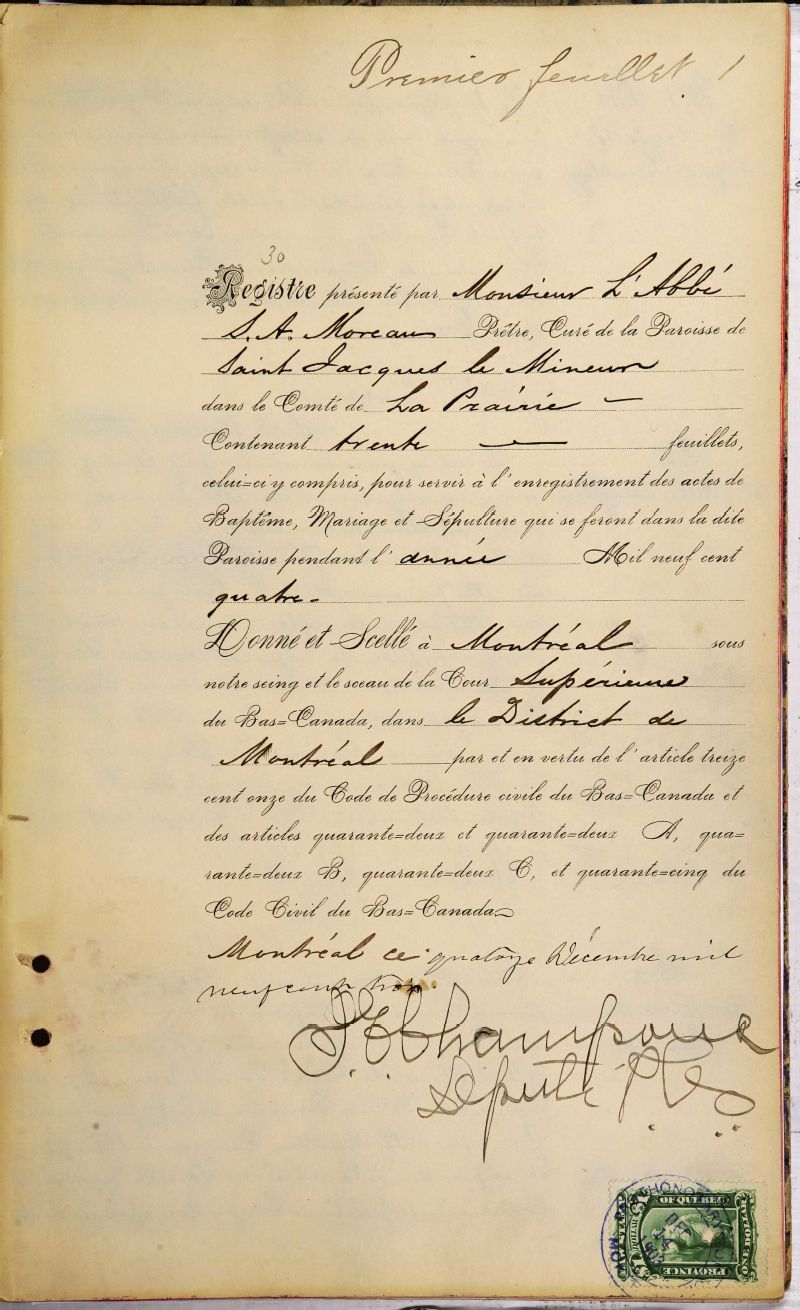 Premier feuillet 1
30
Registre présenté par Monsieur L'Abbé
S. A. Moreau Prêtre, Curé de la Paroisse de
Saint Jacques le Mineur
dans le Comté de La Prairie —
Contenant trente — feuillets,
celui=ci y compris, pour servir à l'enregistrement des actes de
Baptême, Mariage et Sépulture qui se feront dans la dite
Paroisse pendant l'année Mil neuf cent
quatre -
Donné et Scellé à Montréal sous
notre seing et le sceau de la Cour Supérieure
du Bas=Canada, dans le District de
Montréal par et en vertu de l'article treize
cent onze du Code de Procédure civile du Bas=Canada et
des articles quarante=deux et quarante=deux A, qua=
rante=deux B, quarante=deux C, et quarante=cinq du
Code Civil du Bas=Canada
Montréal ce quatorze Décembre mil
neuf cent trois.
Champoux
Député
PROVINCE OF QUEBEC
ONE DOLLAR
DEC
14
1903